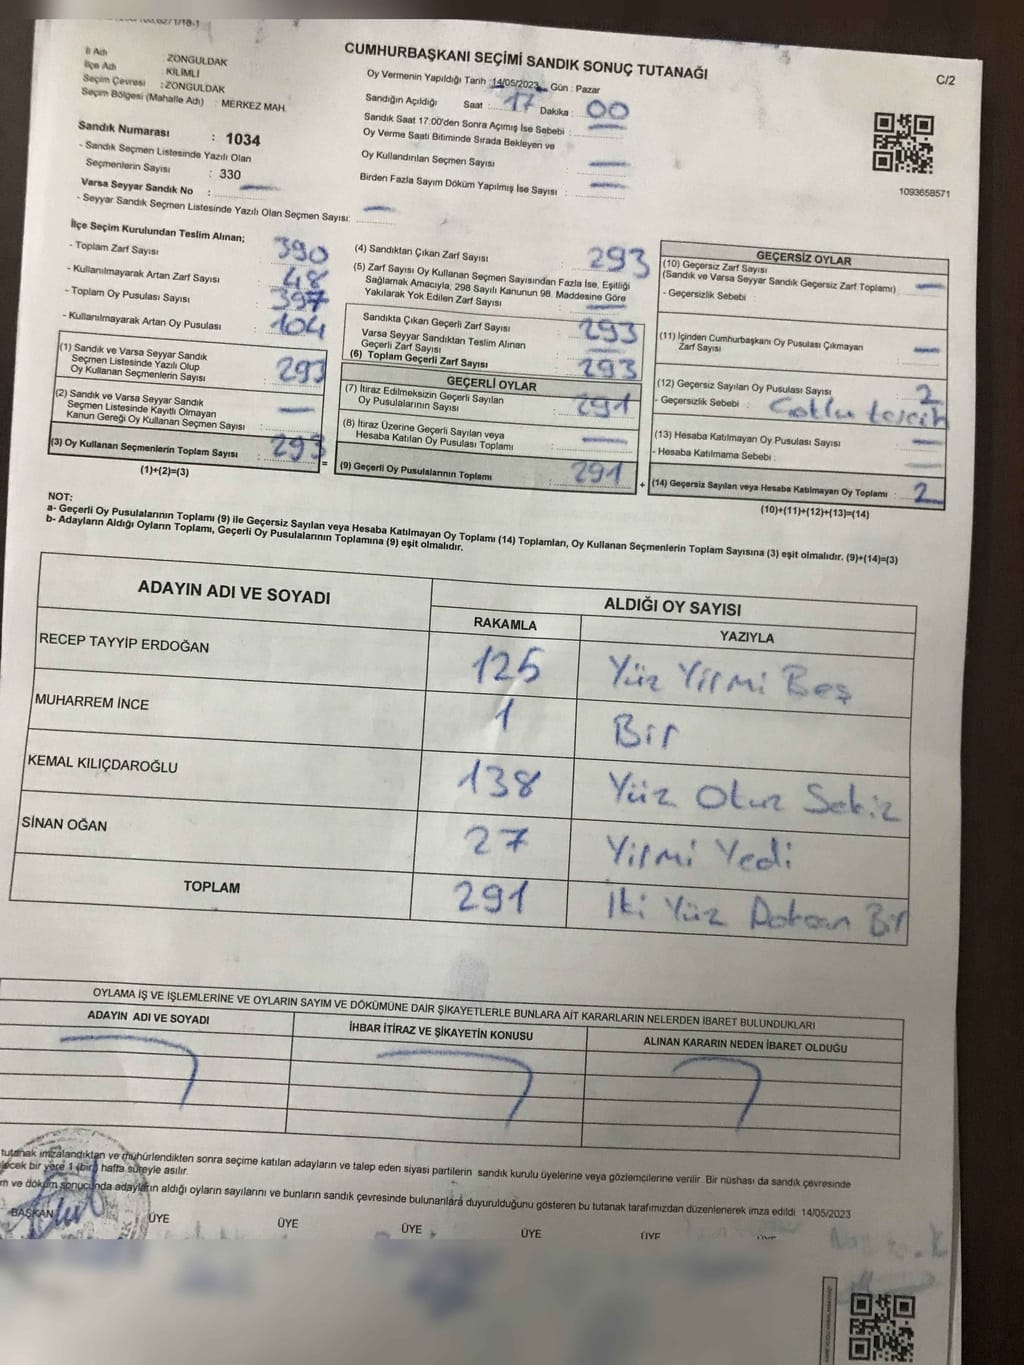 CUMHURBAŞKANI SEÇİMİ SANDIK SONUÇ TUTANAĞI
C/2
İl Adı : ZONGULDAK
İlçe Adı : KİLİMLİ
Seçim Çevresi : ZONGULDAK
Seçim Bölgesi (Mahalle Adı) : MERKEZ MAH.
Oy Vermenin Yapıldığı Tarih : 14/05/2023 Gün : Pazar
Sandığın Açıldığı Saat : 17 Dakika : 00
Sandık Saat 17:00'den Sonra Açımış İse Sebebi :
Oy Verme Saati Bitiminde Sırada Bekleyen ve
Oy Kullandırılan Seçmen Sayısı : —
Birden Fazla Sayım Döküm Yapılmış İse Sayısı : —
1093658571
Sandık Numarası : 1034
- Sandık Seçmen Listesinde Yazılı Olan
Seçmenlerin Sayısı : 330
Varsa Seyyar Sandık No : —
- Seyyar Sandık Seçmen Listesinde Yazılı Olan Seçmen Sayısı: —
İlçe Seçim Kurulundan Teslim Alınan;
- Toplam Zarf Sayısı : 390
- Kullanılmayarak Artan Zarf Sayısı : 48
- Toplam Oy Pusulası Sayısı : 397
- Kullanılmayarak Artan Oy Pusulası : 104
(1) Sandık ve Varsa Seyyar Sandık
Seçmen Listesinde Yazılı Olup
Oy Kullanan Seçmenlerin Sayısı : 293
(2) Sandık ve Varsa Seyyar Sandık
Seçmen Listesinde Kayıtlı Olmayan
Kanun Gereği Oy Kullanan Seçmen Sayısı : —
(3) Oy Kullanan Seçmenlerin Toplam Sayısı : 293
(1)+(2)=(3)
=
(4) Sandıktan Çıkan Zarf Sayısı : 293
(5) Zarf Sayısı Oy Kullanan Seçmen Sayısından Fazla İse, Eşitliği
Sağlamak Amacıyla; 298 Sayılı Kanunun 98. Maddesine Göre
Yakılarak Yok Edilen Zarf Sayısı : —
Sandıkta Çıkan Geçerli Zarf Sayısı : 293
Varsa Seyyar Sandıktan Teslim Alınan
Geçerli Zarf Sayısı : —
(6) Toplam Geçerli Zarf Sayısı : 293
GEÇERLİ OYLAR
(7) İtiraz Edilmeksizin Geçerli Sayılan
Oy Pusulalarının Sayısı : 291
(8) İtiraz Üzerine Geçerli Sayılan veya
Hesaba Katılan Oy Pusulası Toplamı : —
(9) Geçerli Oy Pusulalarının Toplamı : 291
+
GEÇERSİZ OYLAR
(10) Geçersiz Zarf Sayısı
(Sandık ve Varsa Seyyar Sandık Geçersiz Zarf Toplamı) : —
- Geçersizlik Sebebi :
(11) İçinden Cumhurbaşkanı Oy Pusulası Çıkmayan
Zarf Sayısı : —
(12) Geçersiz Sayılan Oy Pusulası Sayısı : 2
- Geçersizlik Sebebi :
(13) Hesaba Katılmayan Oy Pusulası Sayısı : —
- Hesaba Katılmama Sebebi : —
(14) Geçersiz Sayılan veya Hesaba Katılmayan Oy Toplamı : 2
(10)+(11)+(12)+(13)=(14)
NOT:
a- Geçerli Oy Pusulalarının Toplamı (9) ile Geçersiz Sayılan veya Hesaba Katılmayan Oy Toplamı (14) Toplamları, Oy Kullanan Seçmenlerin Toplam Sayısına (3) eşit olmalıdır. (9)+(14)=(3)
b- Adayların Aldığı Oyların Toplamı, Geçerli Oy Pusulalarının Toplamına (9) eşit olmalıdır.
ADAYIN ADI VE SOYADI ALDIĞI OY SAYISI
RAKAMLA YAZIYLA
RECEP TAYYİP ERDOĞAN 125 Yüz Yirmi Beş
MUHARREM İNCE 1 Bir
KEMAL KILIÇDAROĞLU 138 Yüz Otuz Sekiz
SİNAN OĞAN 27 Yirmi Yedi
TOPLAM 291 İki Yüz Doksan Bir
OYLAMA İŞ VE İŞLEMLERİNE VE OYLARIN SAYIM VE DÖKÜMÜNE DAİR ŞİKAYETLERLE BUNLARA AİT KARARLARIN NELERDEN İBARET BULUNDUKLARI
ADAYIN ADI VE SOYADI İHBAR İTİRAZ VE ŞİKAYETİN KONUSU ALINAN KARARIN NEDEN İBARET OLDUĞU
tutanak imzalandıktan ve mühürlendikten sonra seçime katılan adayların ve talep eden siyasi partilerin sandık kurulu üyelerine veya gözlemcilerine verilir. Bir nüshası da sandık çevresinde
bir yere 1 (bir) hafta süreyle asılır.
ve döküm sonucunda adayların aldığı oyların sayılarını ve bunların sandık çevresinde bulunanlara duyurulduğunu gösteren bu tutanak tarafımızdan düzenlenerek imza edildi 14/05/2023
BAŞKAN ÜYE ÜYE ÜYE ÜYE ÜYE